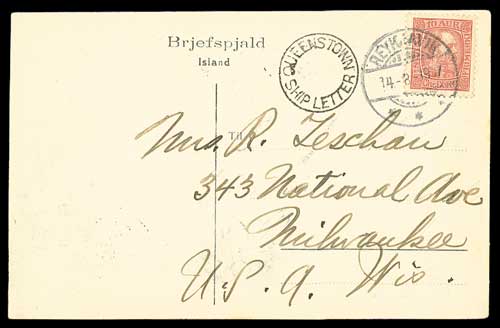 Brjefspjald
Ísland
QUEENSTOWN
SHIP LETTER
REYKJAVIK
14-8
10 AUR
Til
Mrs. R. Teschan
343 National Ave
Milwaukee
U.S.A. Wis.